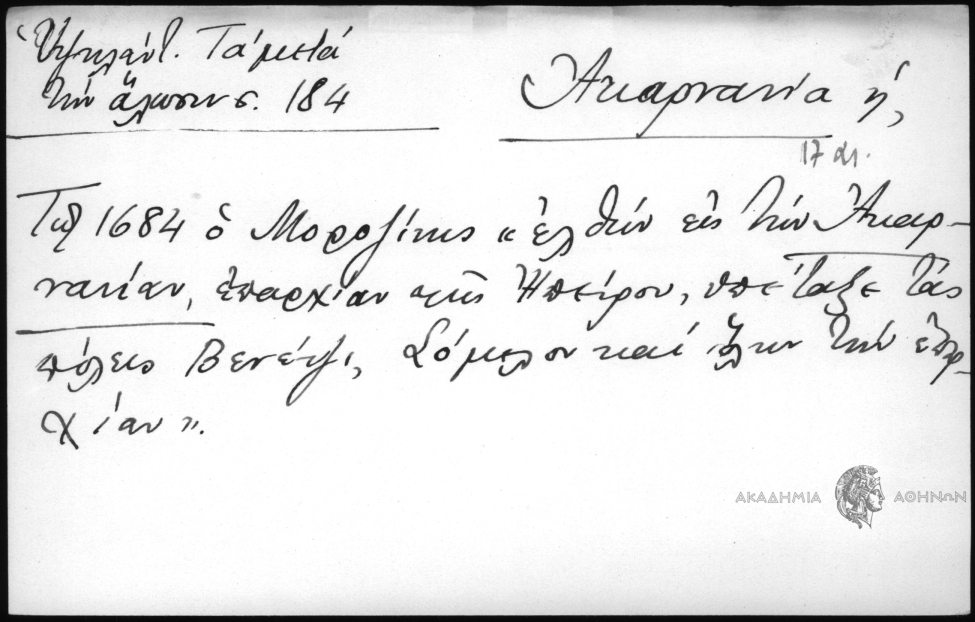 Ὑψηλάντ. Τά μετά
τήν ἅλωσιν σ. 184
Ἀκαρνανία ἡ,
17 αι.
Τῷ 1684 ὁ Μοροζίνης « ἐλθών εἰς τήν Ἀκαρ-
νανίαν, ἐπαρχίαν τῆς Ἠπείρου, ὑπέταξε τάς
πόλεις Βενέτζι, Σόμερον καί ὅλην τήν ἐπαρ-
χίαν ».
ΑΚΑΔΗΜΙΑ ΑΘΗΝΩΝ